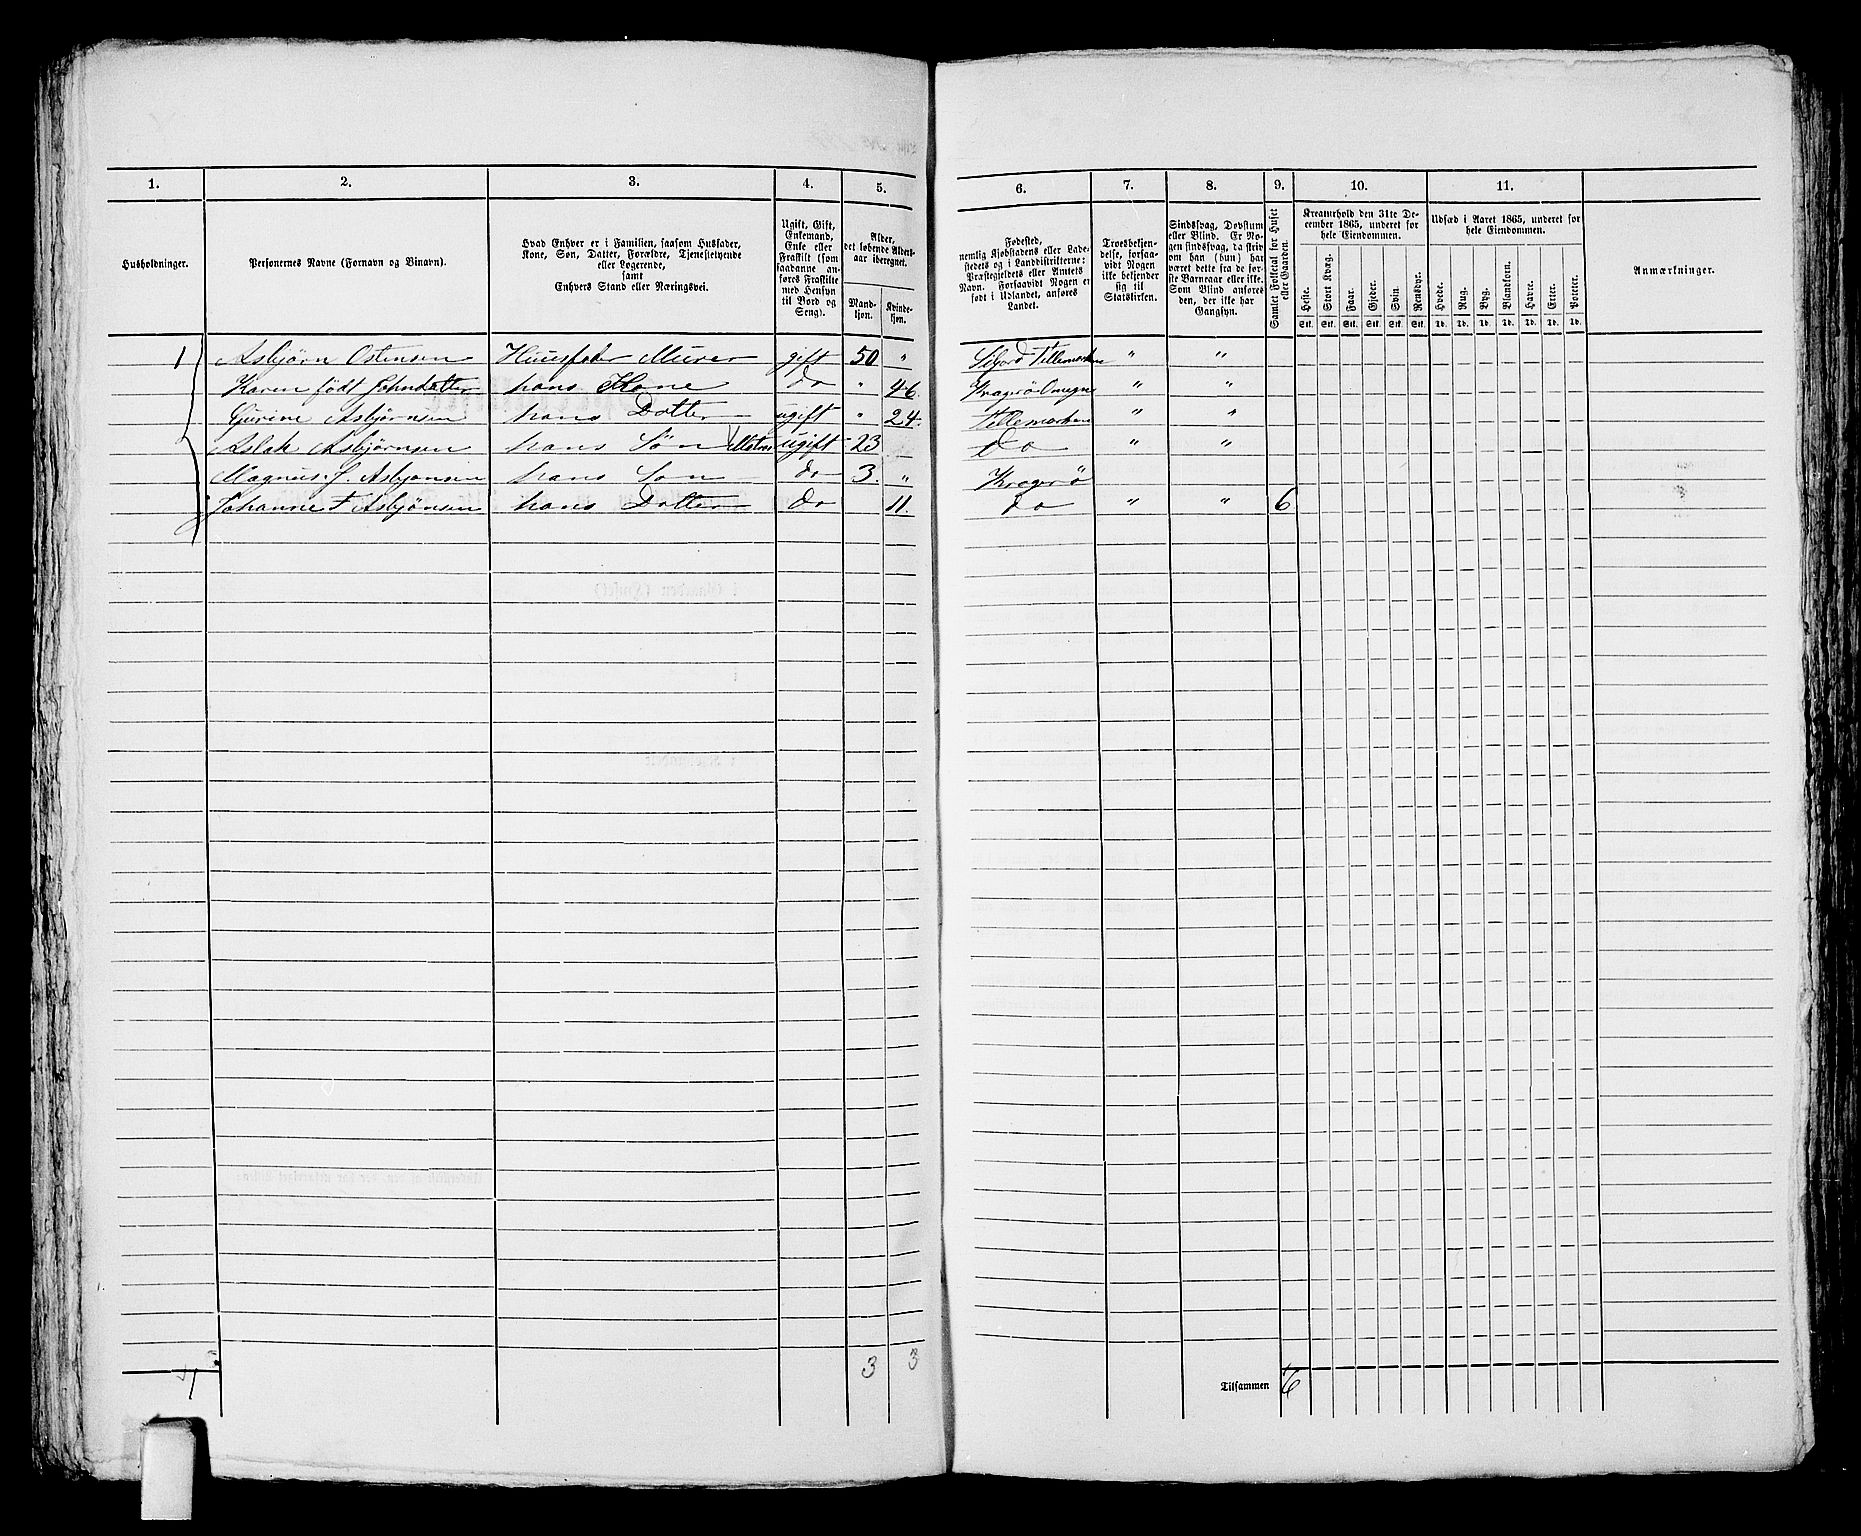 1. 2. 3. 4. 5. 6. 7. 8. 9. 10. 11.
Husholdninger.
Personernes Navne (Fornavn og Binavn).
Hvad Enhver er i Familien, saasom Husfader,
Kone, Søn, Datter, Forældre, Tjenestetyende
eller Logerende,
samt
Enhvers Stand eller Næringsvei.
Ugift, Gift,
Enkemand,
Enke eller
Fraskilt (som
saadanne an-
føres Fraskilte
med Hensyn
til Bord og
Seng).
Alder,
det løbende Alders-
aar iberegnet.
Mand-
kjøn.
Kvinde-
kjøn.
Fødested,
nemlig Kjøbstadens eller Lade-
stedets og i Landdistrikterne:
Præstegjeldets eller Amtets
Navn. Forsaavidt Nogen er
født i Udlandet, anføres
Landet.
Troesbekjen-
delse, forsaa-
vidt Nogen
ikke bekjender
sig til
Statskirken.
Sindssvag, Døvstum
eller Blind. Er No-
gen sindssvag, da skriv
om han (hun) har
været dette fra de før-
ste Barneaar eller ikke.
Som Blind anføres
den, der ikke har
Gangsyn.
Samlet Folketal for Huset
eller Gaarden.
Kreaturhold den 31te De-
cember 1865, underet for
hele Eiendommen.
Heste. Stort Kvæg. Faar. Gjeder. Svin. Rensdyr.
Stk. Stk. Stk. Stk. Stk. Stk.
Udsæd i Aaret 1865, underet for
hele Eiendommen.
Hvede. Rug. Byg. Blandkorn. Havre. Erter. Poteter.
Td. Td. Td. Td. Td. Td. Td.
Anmærkninger.
1 Asbjørn Ostensen Huusfader Murer gift 50 " Siljord Tellemarken " "
Karen født Johndatter hans Kone do " 46. Kragerö Omegn " "
Gurine Asbjørnsen hans Datter ugift " 24. Tellemarken " "
Aslak Asbjørnsen hans Søn Matros ugift 23 Do " "
Magnus. J. Asbjønsen hans Søn do 3. " Kragerö
Johanne F Asbjönsen hans Datter do 11. do " " 6
1 3 3 Tilsammen 6